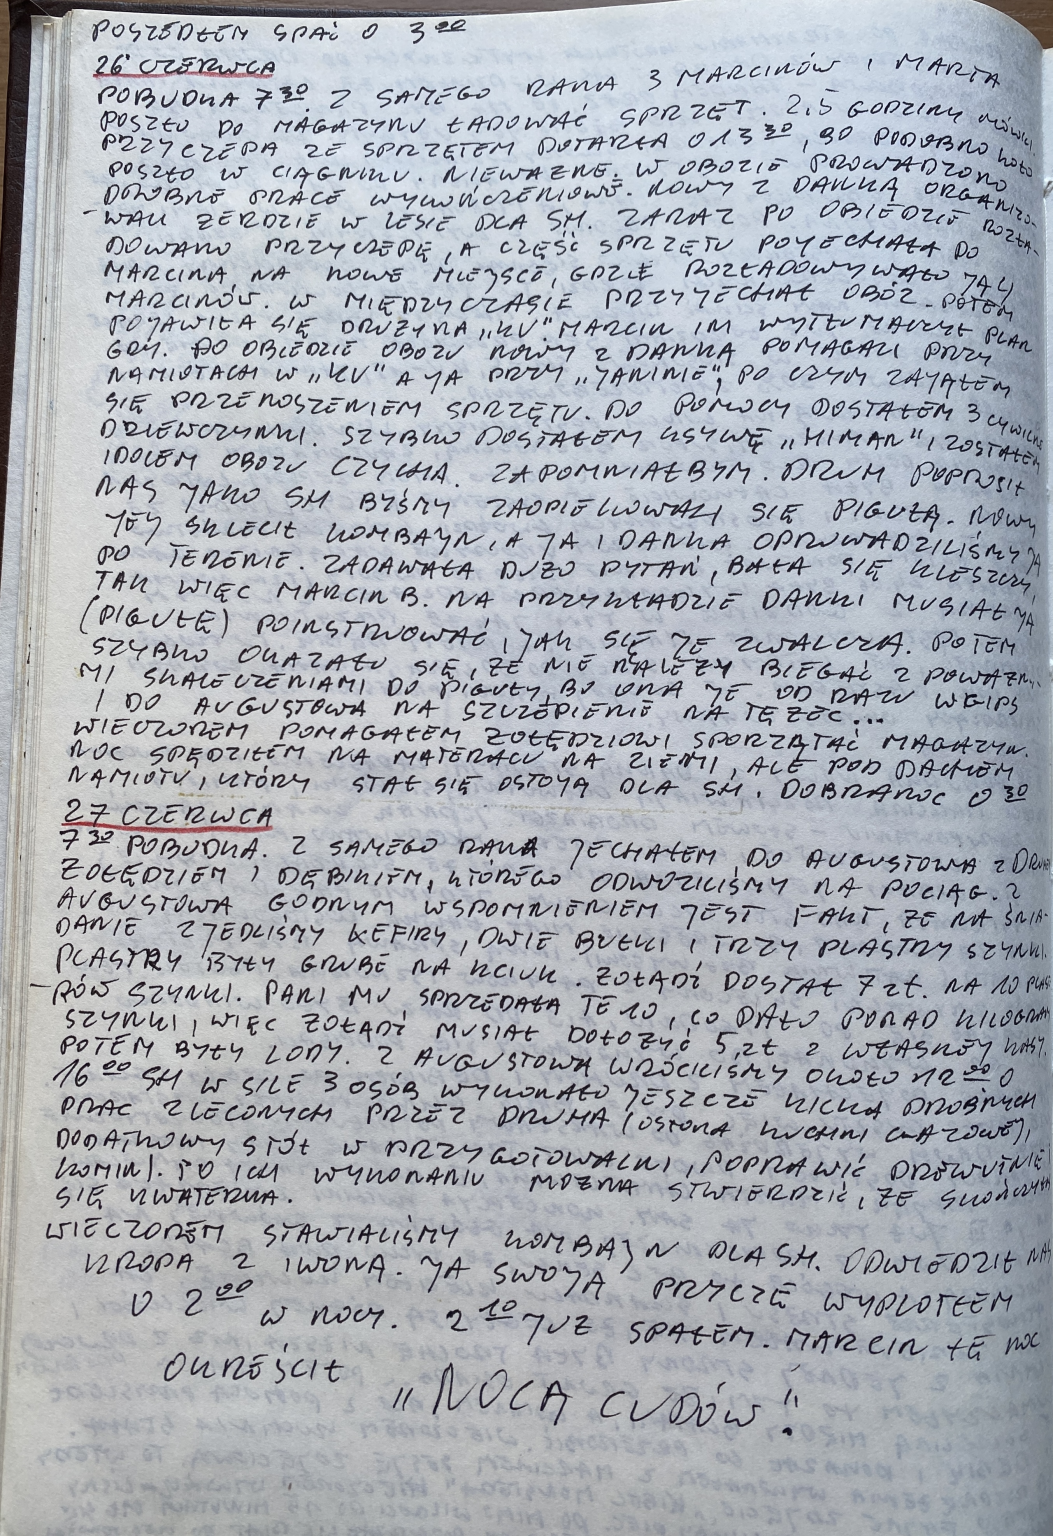 POSZEDŁEM SPAĆ O 3⁰⁰
26 CZERWCA
POBUDKA 7³⁰. Z SAMEGO RANA 3 MARCINÓW I MARTA
POSZŁO DO MAGAZYNU ŁADOWAĆ SPRZĘT. 2,5 GODZINY
PRZYCZEPA ZE SPRZĘTEM DOTARŁA O 13³⁰, BO PODOBNO KOŁO
POSZŁO W CIĄGNIKU. NIEWAŻNE. W OBOZIE PROWADZONO
DROBNE PRACE WYKOŃCZENIOWE. NOWY Z DANKĄ ORGANIZO-
WALI ŻERDZIE W LESIE DLA SM. ZARAZ PO OBIEDZIE ROZŁA-
DOWANO PRZYCZEPĘ, A CZĘŚĆ SPRZĘTU POJECHAŁA DO
MARCINA, NA NOWE MIEJSCE, GDZIE ROZŁADOWYWAŁO JĄ
MARCINÓW. W MIĘDZYCZASIE PRZYJECHAŁ OBÓZ. POTEM
POJAWIŁA SIĘ DRUŻYNA „KU” MARCIN IM WYTŁUMACZYŁ PLAN
GRY. PO OBIEDZIE OBOZU NOWY Z DANKĄ POMAGALI PRZY
NAMIOTACH W „KU” A JA PRZY „JANINIE”, PO CZYM ZAJĄŁEM
SIĘ PRZENOSZENIEM SPRZĘTU. DO POMOCY DOSTAŁEM 3 CYWILNE
DZIEWCZYNKI. SZYBKO DOSTAŁEM KSYWĘ „HIMAN” I ZOSTAŁEM
IDOLEM OBOZU CZYCHA. ZAPOMNIAŁBYM. DRUH POPROSIŁ
NAS JAKO SM BYŚMY ZAOPIEKOWALI SIĘ PIGUŁĄ. NOWY
JEJ SKLECIŁ KOMBAJN, A JA I DANKA OPROWADZILIŚMY JĄ
PO TERENIE. ZADAWAŁA DUŻO PYTAŃ, BAŁA SIĘ KLESZCZY,
TAK WIĘC MARCIN B. NA PRZYKŁADZIE DANKI MUSIAŁ JĄ
(PIGUŁĘ) POINSTRUOWAĆ, JAK SIĘ JE ZWALCZA. POTEM
SZYBKO OKAZAŁO SIĘ, ŻE NIE NALEŻY BIEGAĆ Z POWAŻNY-
MI SKALECZENIAMI DO PIGUŁY, BO ONA JE OD RAZU W GIPS
I DO AUGUSTOWA NA SZCZEPIENIE NA TĘŻEC...
WIECZOREM POMAGAŁEM ŻOŁĘDZIOWI SPORZĄTAĆ MAGAZYN.
NOC SPĘDZIŁEM NA MATERACU NA ZIEMI, ALE POD DACHEM
NAMIOTU, KTÓRY STAŁ SIĘ OSTOJĄ DLA SM. DOBRANOC 0³⁰
27 CZERWCA
7³⁰ POBUDKA. Z SAMEGO RANA JECHAŁEM DO AUGUSTOWA Z DRUHEM
ŻOŁĘDZIEM I DĘBIKIEM, KTÓREGO ODWOZILIŚMY NA POCIĄG. Z
AUGUSTOWA GODNYM WSPOMNIENIEM JEST FAKT, ŻE NA ŚNIA-
DANIE ZJEDLIŚMY KEFIRY, DWIE BUŁKI I TRZY PLASTRY SZYNKI.
PLASTRY BYŁY GRUBE NA KCIUK. ŻOŁĄDŹ DOSTAŁ 7 ZŁ. NA 10 PLAST-
RÓW SZYNKI. PANI MU SPRZEDAŁA TE 10, CO DAŁO PONAD KILOGRAM
SZYNKI, WIĘC ŻOŁĄDŹ MUSIAŁ DOŁOŻYĆ 5 ZŁ Z WŁASNEJ KASY.
POTEM BYŁY LODY. Z AUGUSTOWA WRÓCILIŚMY OKOŁO 12⁰⁰ O
16⁰⁰ SM W SILE 3 OSÓB WYKONAŁO JESZCZE KILKA DROBNYCH
PRAC ZLECONYCH PRZEZ DRUHA (OSŁONA KUCHNI GAZOWEJ,
DODATKOWY STÓŁ W PRZYGOTOWALNI, POPRAWIĆ DREWUTNIĘ I
KOMIN). PO ICH WYKONANIU MOŻNA STWIERDZIĆ, ŻE SKOŃCZYŁA
SIĘ KWATERKA.
WIECZOREM STAWIALIŚMY KOMBAJN DLA SM. ODWIEDZIŁ NAS
KROPA Z IWONĄ. JA SWOJĄ PRYCZĘ WYPLOTŁEM
O 2⁰⁰ W NOCY. 2¹⁰ JUŻ SPAŁEM. MARCIN TĘ NOC
OKREŚLIŁ
„NOCĄ CUDÓW”!